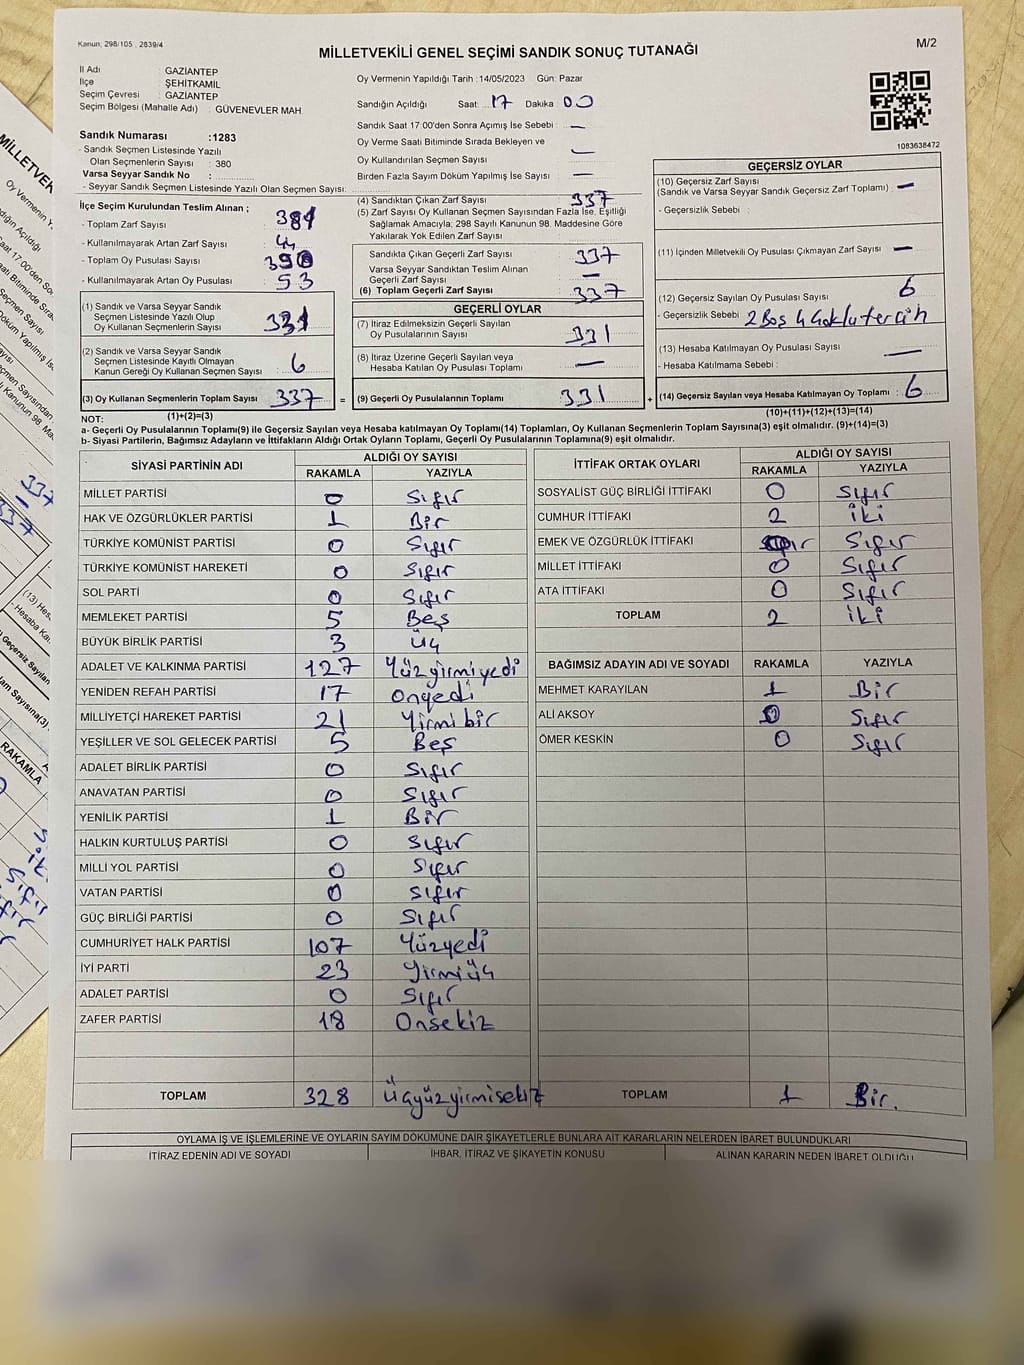 Kanun; 298/105 , 2839/4
M/2
MİLLETVEKİLİ GENEL SEÇİMİ SANDIK SONUÇ TUTANAĞI
İl Adı : GAZİANTEP
İlçe : ŞEHİTKAMİL
Seçim Çevresi : GAZİANTEP
Seçim Bölgesi (Mahalle Adı) : GÜVENEVLER MAH.
Sandık Numarası :1283
- Sandık Seçmen Listesinde Yazılı
Olan Seçmenlerin Sayısı : 380
Varsa Seyyar Sandık No :
- Seyyar Sandık Seçmen Listesinde Yazılı Olan Seçmen Sayısı:
Oy Vermenin Yapıldığı Tarih :14/05/2023 Gün: Pazar
Sandığın Açıldığı Saat: 17 Dakika : 00
Sandık Saat 17:00'den Sonra Açımış İse Sebebi : —
Oy Verme Saati Bitiminde Sırada Bekleyen ve
Oy Kullandırılan Seçmen Sayısı : —
Birden Fazla Sayım Döküm Yapılmış İse Sayısı : —
1083638472
İlçe Seçim Kurulundan Teslim Alınan ;
- Toplam Zarf Sayısı :
- Kullanılmayarak Artan Zarf Sayısı : 44
- Toplam Oy Pusulası Sayısı :
- Kullanılmayarak Artan Oy Pusulası : 53
(1) Sandık ve Varsa Seyyar Sandık
Seçmen Listesinde Yazılı Olup
Oy Kullanan Seçmenlerin Sayısı : 331
(2) Sandık ve Varsa Seyyar Sandık
Seçmen Listesinde Kayıtlı Olmayan
Kanun Gereği Oy Kullanan Seçmen Sayısı : 6
(3) Oy Kullanan Seçmenlerin Toplam Sayısı : 337
(1)+(2)=(3)
(4) Sandıktan Çıkan Zarf Sayısı : 337
(5) Zarf Sayısı Oy Kullanan Seçmen Sayısından Fazla İse, Eşitliği
Sağlamak Amacıyla; 298 Sayılı Kanunun 98. Maddesine Göre
Yakılarak Yok Edilen Zarf Sayısı :
Sandıkta Çıkan Geçerli Zarf Sayısı : 337
Varsa Seyyar Sandıktan Teslim Alınan
Geçerli Zarf Sayısı : —
(6) Toplam Geçerli Zarf Sayısı : 337
GEÇERLİ OYLAR
(7) İtiraz Edilmeksizin Geçerli Sayılan
Oy Pusulalarının Sayısı : 331
(8) İtiraz Üzerine Geçerli Sayılan veya
Hesaba Katılan Oy Pusulası Toplamı : —
= (9) Geçerli Oy Pusulalarının Toplamı : 331
GEÇERSİZ OYLAR
(10) Geçersiz Zarf Sayısı
(Sandık ve Varsa Seyyar Sandık Geçersiz Zarf Toplamı) : —
- Geçersizlik Sebebi :
(11) İçinden Milletvekili Oy Pusulası Çıkmayan Zarf Sayısı : —
(12) Geçersiz Sayılan Oy Pusulası Sayısı : 6
- Geçersizlik Sebebi : 2 Boş 4 Çoklu tercih
(13) Hesaba Katılmayan Oy Pusulası Sayısı : —
- Hesaba Katılmama Sebebi :
+ (14) Geçersiz Sayılan veya Hesaba Katılmayan Oy Toplamı : 6
(10)+(11)+(12)+(13)=(14)
NOT:
a- Geçerli Oy Pusulalarının Toplamı(9) ile Geçersiz Sayılan veya Hesaba katılmayan Oy Toplamı(14) Toplamları, Oy Kullanan Seçmenlerin Toplam Sayısına(3) eşit olmalıdır. (9)+(14)=(3)
b- Siyasi Partilerin, Bağımsız Adayların ve İttifakların Aldığı Ortak Oyların Toplamı, Geçerli Oy Pusulalarının Toplamına(9) eşit olmalıdır.
SİYASİ PARTİNİN ADI ALDIĞI OY SAYISI
RAKAMLA YAZIYLA
MİLLET PARTİSİ 0 Sıfır
HAK VE ÖZGÜRLÜKLER PARTİSİ 1 Bir
TÜRKİYE KOMÜNİST PARTİSİ 0 Sıfır
TÜRKİYE KOMÜNİST HAREKETİ 0 Sıfır
SOL PARTİ 0 Sıfır
MEMLEKET PARTİSİ 5 Beş
BÜYÜK BİRLİK PARTİSİ 3 Üç
ADALET VE KALKINMA PARTİSİ 127 Yüzyirmiyedi
YENİDEN REFAH PARTİSİ 17 Onyedi
MİLLİYETÇİ HAREKET PARTİSİ 21 Yirmi bir
YEŞİLLER VE SOL GELECEK PARTİSİ 5 Beş
ADALET BİRLİK PARTİSİ 0 Sıfır
ANAVATAN PARTİSİ 0 Sıfır
YENİLİK PARTİSİ 1 Bir
HALKIN KURTULUŞ PARTİSİ 0 Sıfır
MİLLİ YOL PARTİSİ 0 Sıfır
VATAN PARTİSİ 0 Sıfır
GÜÇ BİRLİĞİ PARTİSİ 0 Sıfır
CUMHURİYET HALK PARTİSİ 107 Yüzyedi
İYİ PARTİ 23 Yirmiüç
ADALET PARTİSİ 0 Sıfır
ZAFER PARTİSİ 18 Onsekiz
TOPLAM 328 Üçyüzyirmisekiz
İTTİFAK ORTAK OYLARI ALDIĞI OY SAYISI
RAKAMLA YAZIYLA
SOSYALİST GÜÇ BİRLİĞİ İTTİFAKI 0 Sıfır
CUMHUR İTTİFAKI 2 iki
EMEK VE ÖZGÜRLÜK İTTİFAKI Sıfır
MİLLET İTTİFAKI 0 Sıfır
ATA İTTİFAKI 0 Sıfır
TOPLAM 2 iki
BAĞIMSIZ ADAYIN ADI VE SOYADI RAKAMLA YAZIYLA
MEHMET KARAYILAN 1 Bir
ALİ AKSOY 0 Sıfır
ÖMER KESKİN 0 Sıfır
TOPLAM 1 Bir.
OYLAMA İŞ VE İŞLEMLERİNE VE OYLARIN SAYIM DÖKÜMÜNE DAİR ŞİKAYETLERLE BUNLARA AİT KARARLARIN NELERDEN İBARET BULUNDUKLARI
İTİRAZ EDENİN ADI VE SOYADI İHBAR, İTİRAZ VE ŞİKAYETİN KONUSU ALINAN KARARIN NEDEN İBARET OLDUĞU